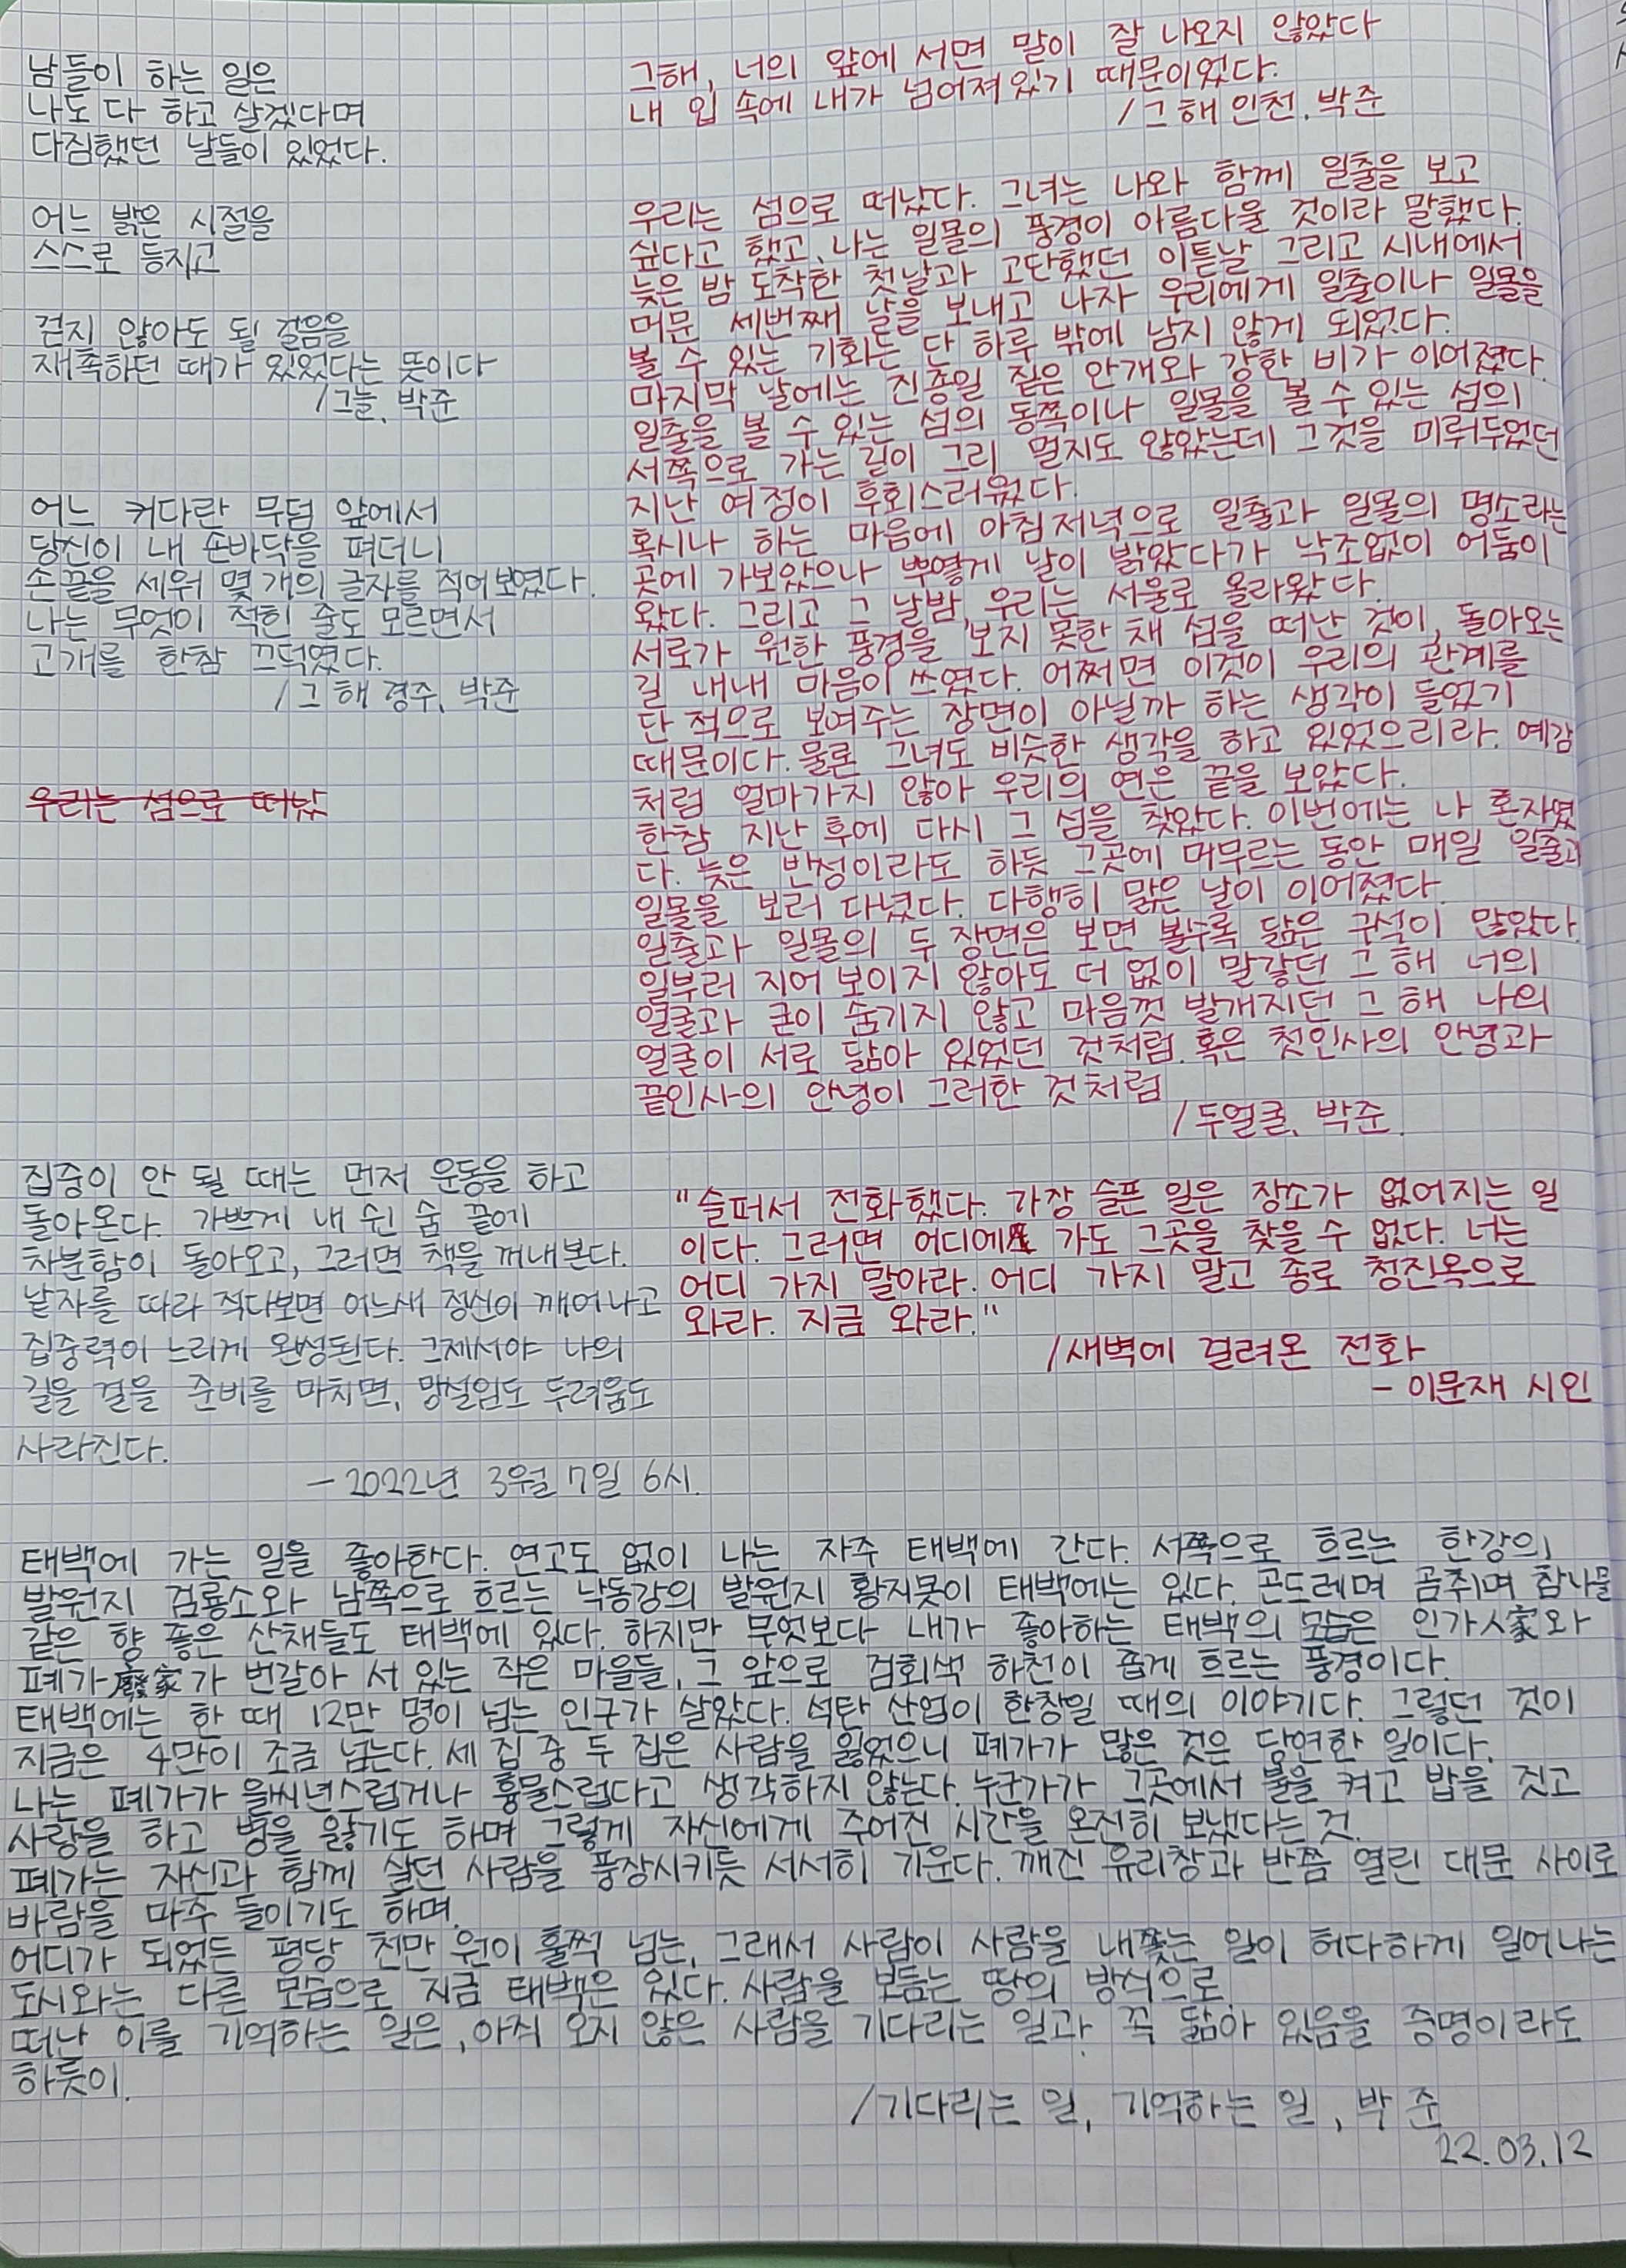 남들이 하는 일은
나도 다 하고 살겠다며
다짐했던 날들이 있었다.
어느 밝은 시절을
스스로 등지고
걷지 않아도 될 걸음을
재촉하던 때가 있었다는 뜻이다
/그늘, 박준
어느 커다란 무덤 앞에서
당신이 내 손바닥을 펴더니
손끝을 세워 몇 개의 글자를 적어보였다.
나는 무엇이 적힌 줄도 모르면서
고개를 한참 끄덕였다.
/그 해 경주, 박준
우리는 섬으로 떠났
그해, 너의 앞에 서면 말이 잘 나오지 않았다
내 입 속에 내가 넘어져있기 때문이었다.
/그 해 인천, 박준
우리는 섬으로 떠났다. 그녀는 나와 함께 일출을 보고
싶다고 했고, 나는 일몰의 풍경이 아름다울 것이라 말했다.
늦은 밤 도착한 첫날과 고단했던 이튿날 그리고 시내에서
머문 세번째 날을 보내고 나자 우리에게 일출이나 일몰을
볼 수 있는 기회는 단 하루 밖에 남지 않게 되었다.
마지막 날에는 진종일 짙은 안개와 강한 비가 이어졌다.
일출을 볼 수 있는 섬의 동쪽이나 일몰을 볼 수 있는 섬의
서쪽으로 가는 길이 그리 멀지도 않았는데 그것을 미뤄두었던
지난 여정이 후회스러웠다.
혹시나 하는 마음에 아침저녁으로 일출과 일몰의 명소라는
곳에 가보았으나 뿌옇게 날이 밝았다가 낙조없이 어둠이
왔다. 그리고 그 날밤, 우리는 서울로 올라왔다.
서로가 원한 풍경을 보지 못한 채 섬을 떠난 것이, 돌아오는
길 내내 마음이 쓰였다. 어쩌면 이것이 우리의 관계를
단적으로 보여주는 장면이 아닐까 하는 생각이 들었기
때문이다. 물론 그녀도 비슷한 생각을 하고 있었으리라. 예감
처럼 얼마가지 않아 우리의 연은 끝을 보았다.
한참 지난 후에 다시 그 섬을 찾았다. 이번에는 나 혼자였
다. 늦은 반성이라도 하듯 그곳에 머무르는 동안 매일 일출과
일몰을 보러 다녔다. 다행히 맑은 날이 이어졌다.
일출과 일몰의 두 장면은 보면 볼수록 닮은 구석이 많았다.
일부러 지어 보이지 않아도 더 없이 말갛던 그 해 너의
얼굴과 굳이 숨기지 않고 마음껏 발개지던 그 해 나의
얼굴이 서로 닮아 있었던 것처럼. 혹은 첫인사의 안녕과
끝인사의 안녕이 그러한 것처럼
/두얼굴, 박준.
집중이 안 될 때는 먼저 운동을 하고
돌아온다. 가쁘게 내 쉰 숨 끝에
차분함이 돌아오고, 그러면 책을 꺼내본다.
낱자를 따라 적다보면 어느새 정신이 깨어나고
집중력이 느리게 완성된다. 그제서야 나의
길을 걸을 준비를 마치면, 망설임도 두려움도
사라진다.
- 2022년 3월 7일 6시.
"슬퍼서 전화했다. 가장 슬픈 일은 장소가 없어지는 일
이다. 그러면 어디에 가도 그곳을 찾을 수 없다. 너는
어디 가지 말아라. 어디 가지 말고 종로 청진옥으로
와라. 지금 와라."
/새벽에 걸려온 전화
- 이문재 시인
태백에 가는 일을 좋아한다. 연고도 없이 나는 자주 태백에 간다. 서쪽으로 흐르는 한강의
발원지 검룡소와 남쪽으로 흐르는 낙동강의 발원지 황지못이 태백에는 있다. 곤드레며 곰취며 참나물
같은 향 좋은 산채들도 태백에 있다. 하지만 무엇보다 내가 좋아하는 태백의 모습은 인가人家와
폐가廢家가 번갈아 서 있는 작은 마을들, 그 앞으로 검회색 하천이 좁게 흐르는 풍경이다.
태백에는 한 때 12만 명이 넘는 인구가 살았다. 석탄 산업이 한창일 때의 이야기다. 그렇던 것이
지금은 4만이 조금 넘는다. 세 집 중 두 집은 사람을 잃었으니 폐가가 많은 것은 당연한 일이다.
나는 폐가가 을씨년스럽거나 흉물스럽다고 생각하지 않는다. 누군가가 그곳에서 불을 켜고 밥을 짓고
사랑을 하고 병을 앓기도 하며 그렇게 자신에게 주어진 시간을 온전히 보냈다는 것.
폐가는 자신과 함께 살던 사람을 풍장시키듯 서서히 기운다. 깨진 유리창과 반쯤 열린 대문 사이로
바람을 마주 들이기도 하며.
어디가 되었든 평당 천만 원이 훌쩍 넘는, 그래서 사람이 사람을 내쫓는 일이 허다하게 일어나는
도시와는 다른 모습으로 지금 태백은 있다. 사람을 보듬는 땅의 방식으로.
떠난 이를 기억하는 일은, 아직 오지 않은 사람을 기다리는 일과 꼭 닮아 있음을 증명이라도
하듯이.
/기다리는 일, 기억하는 일, 박 준
22.03.12